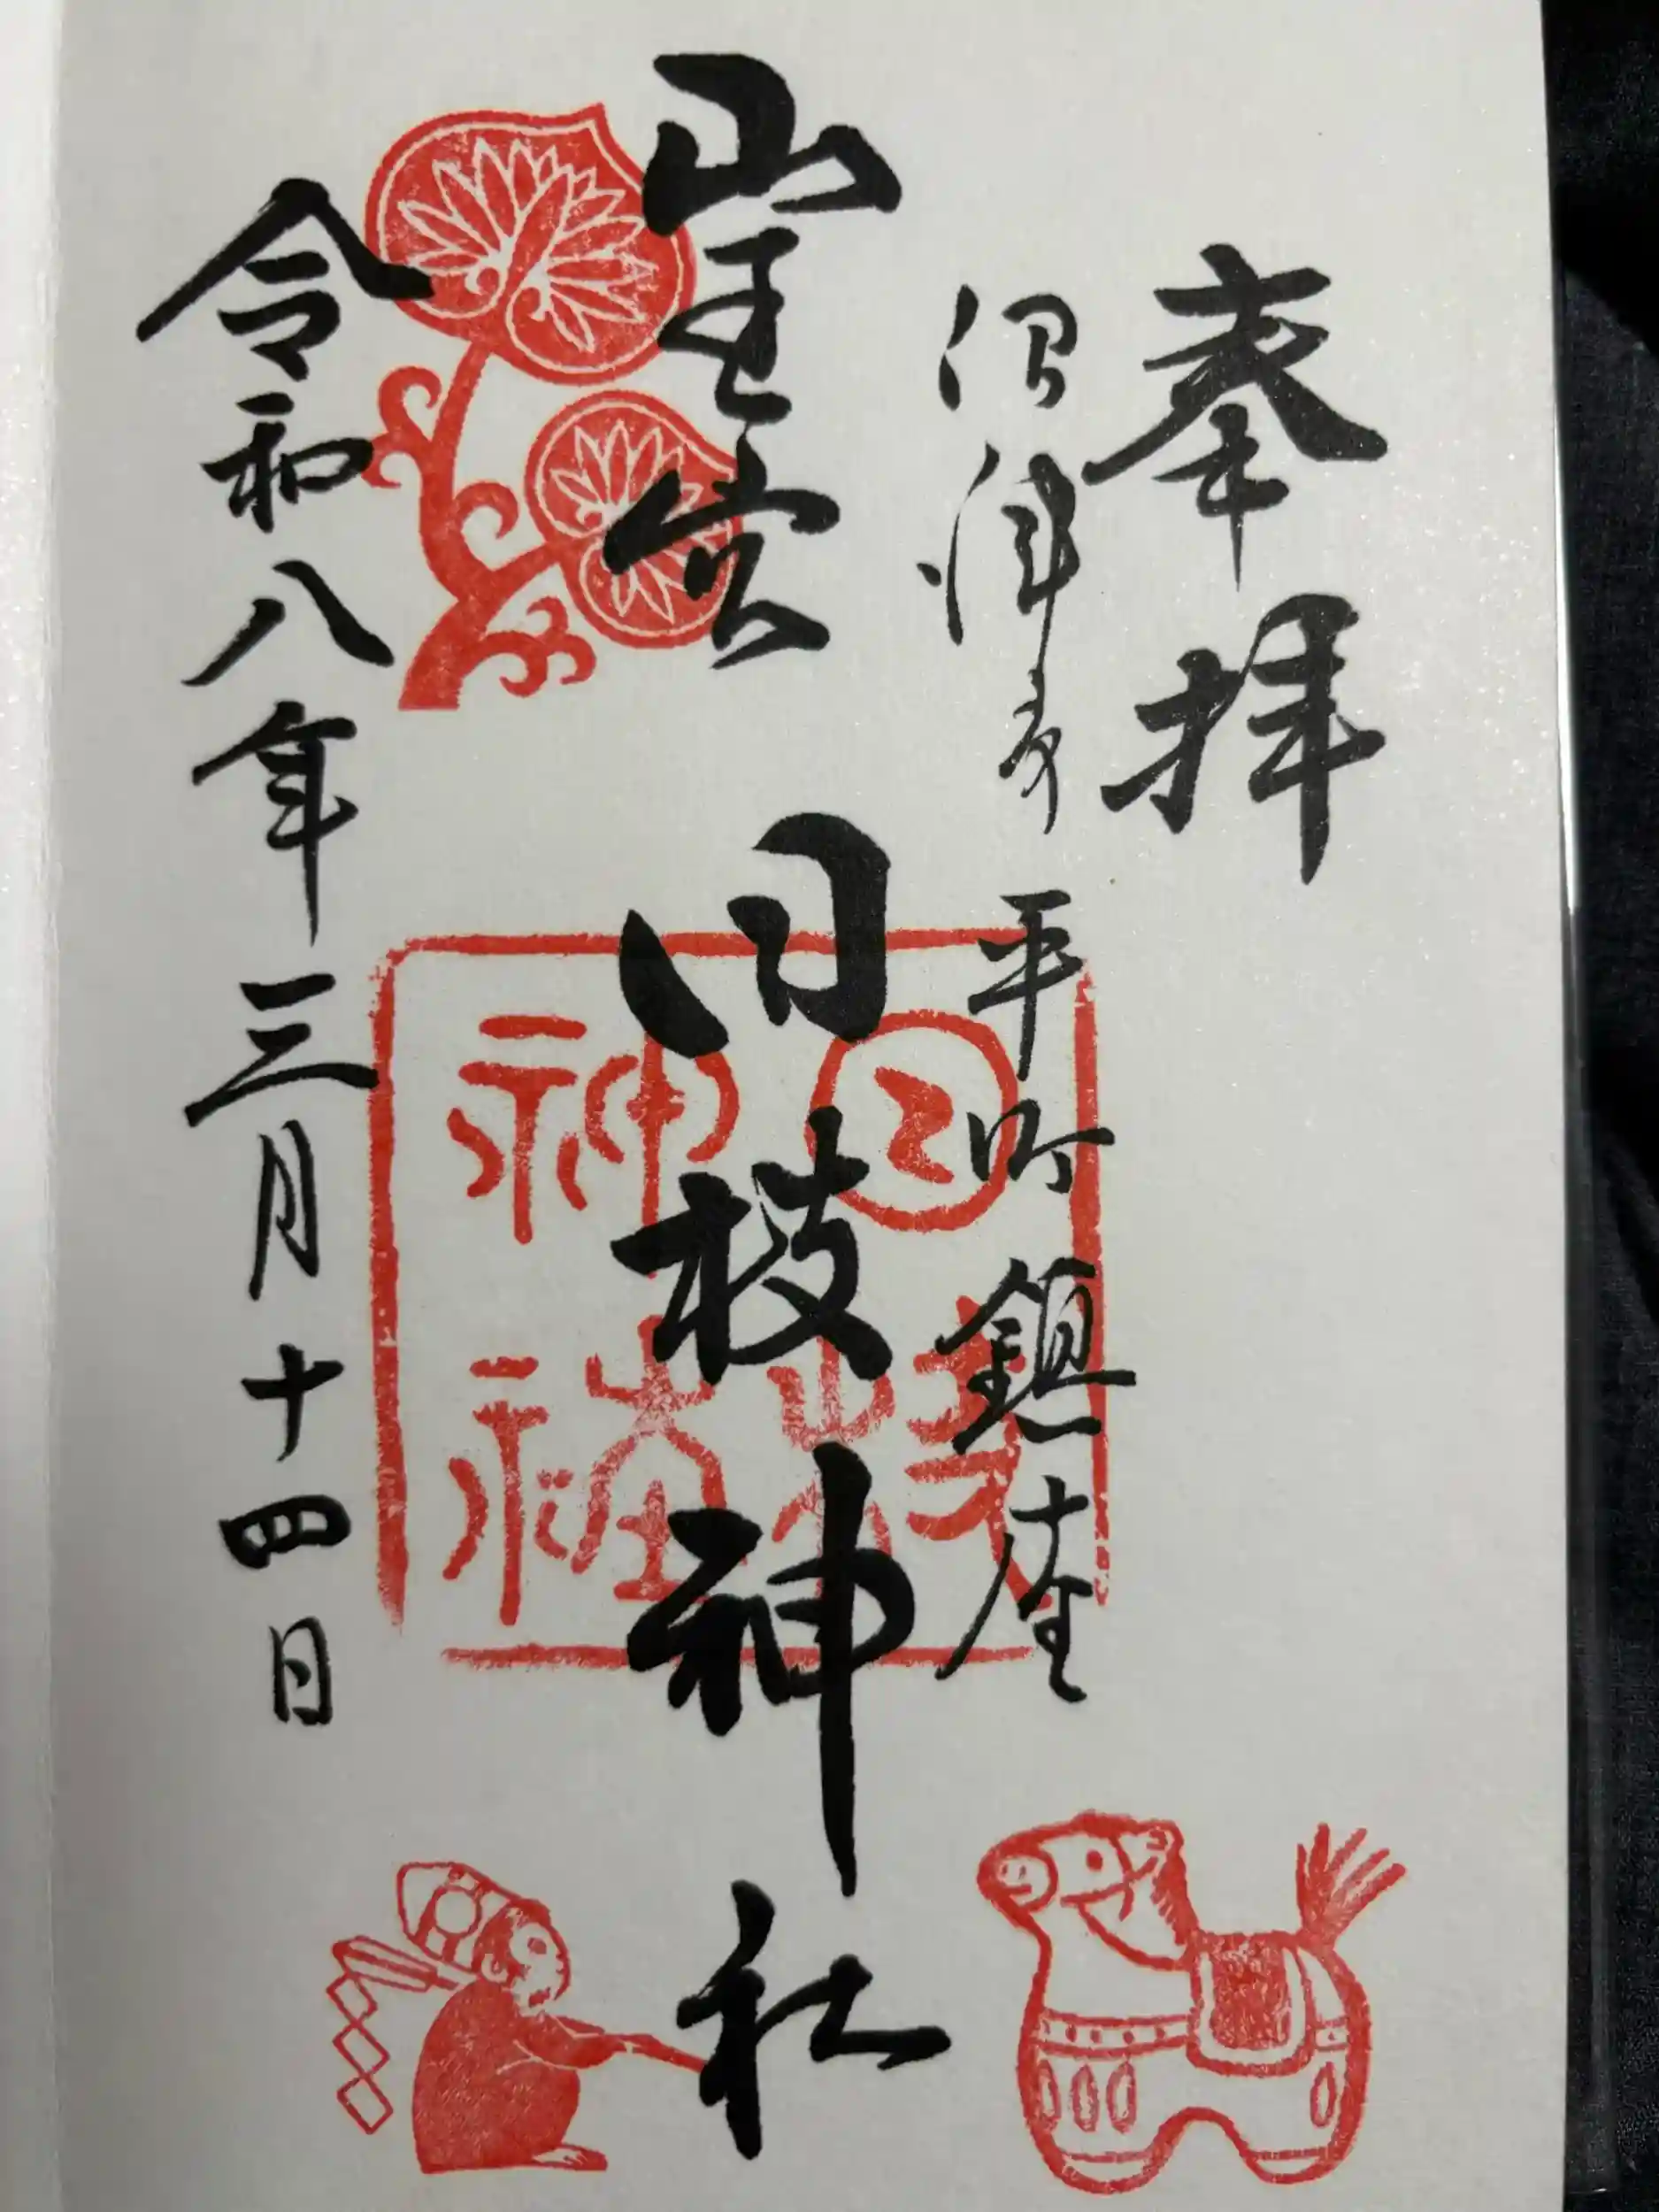 奉拝
沼津市 平町 鎮座
山王宮 日枝神社
令和八年三月十四日
日枝
神社